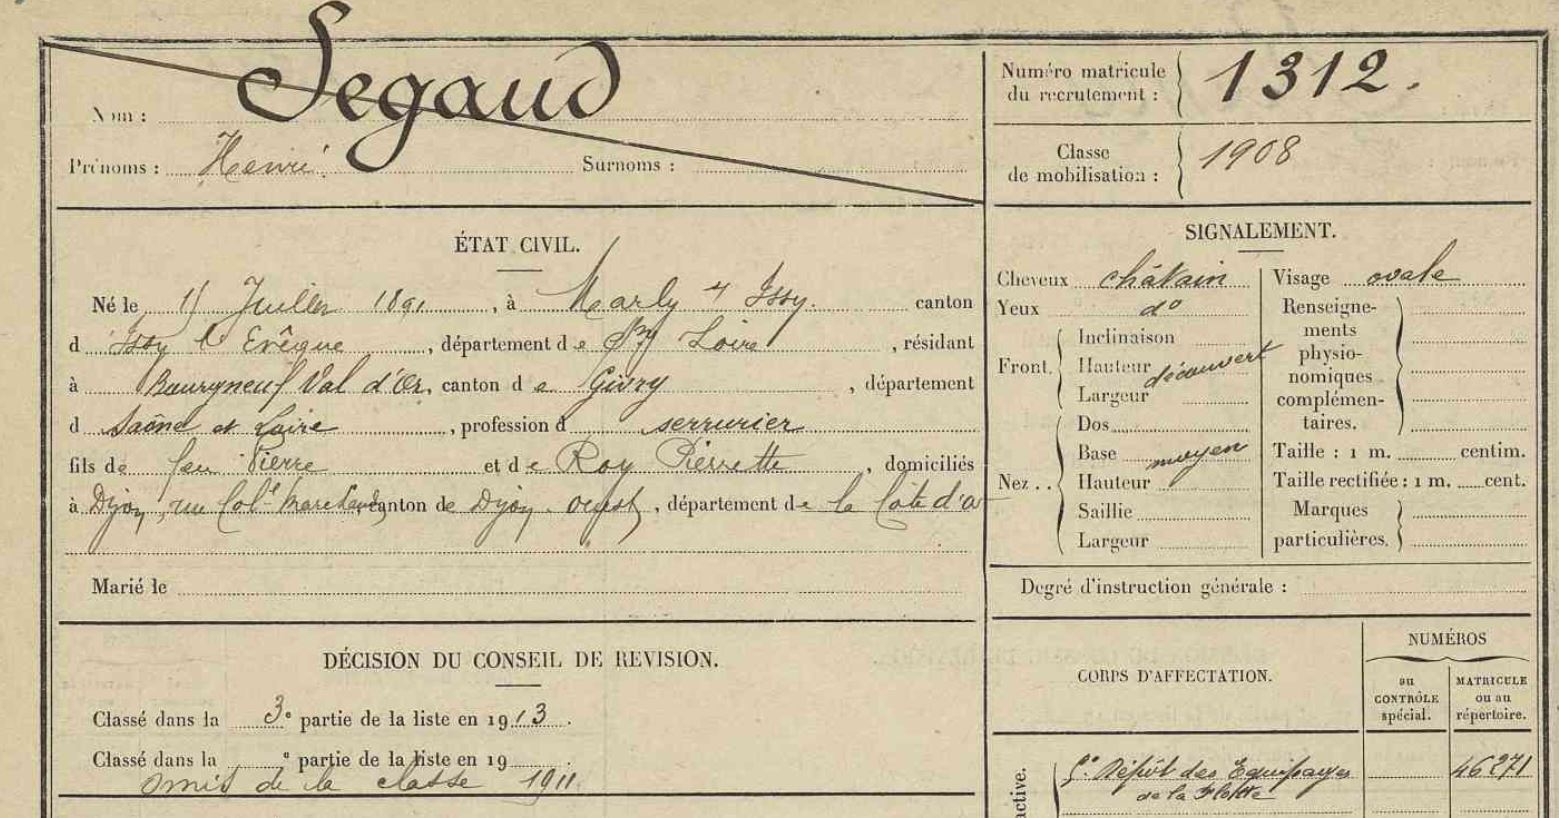 Nom : Segaud
Prénoms : Henri. Surnoms :
Numéro matricule
du recrutement : 1312.
Classe
de mobilisation : 1908
ÉTAT CIVIL.
Né le Juillet 1891, à Marly s/ Issy. canton
d Issy l'Evêque, département de Sne Loire, résidant
à Bourgneuf Val d'Or, canton de Givry, département
d Saône et Loire, profession d serrurier
fils de feu Pierre et de Roy Pierrette, domiciliés
à Dijon, rue Col. Marchand, canton de Dijon-ouest, département de la Côte d'or
Marié le
DÉCISION DU CONSEIL DE REVISION.
Classé dans la 3e partie de la liste en 1913.
Classé dans la e partie de la liste en 19
omis de la classe 1911.
SIGNALEMENT.
Cheveux châtain
Yeux do
Front. Inclinaison
Hauteur découvert
Largeur
Nez .. Dos
Base moyen
Hauteur
Saillie
Largeur
Visage ovale
Renseigne-
ments
physio-
nomiques
complémen-
taires.
Taille : 1 m. centim.
Taille rectifiée : 1 m. cent.
Marques
particulières.
Degré d'instruction générale :
CORPS D'AFFECTATION.
NUMÉROS
au
CONTRÔLE
spécial.
MATRICULE
ou au
répertoire.
active.
5e Dépôt des Equipages 46271
de la Flotte